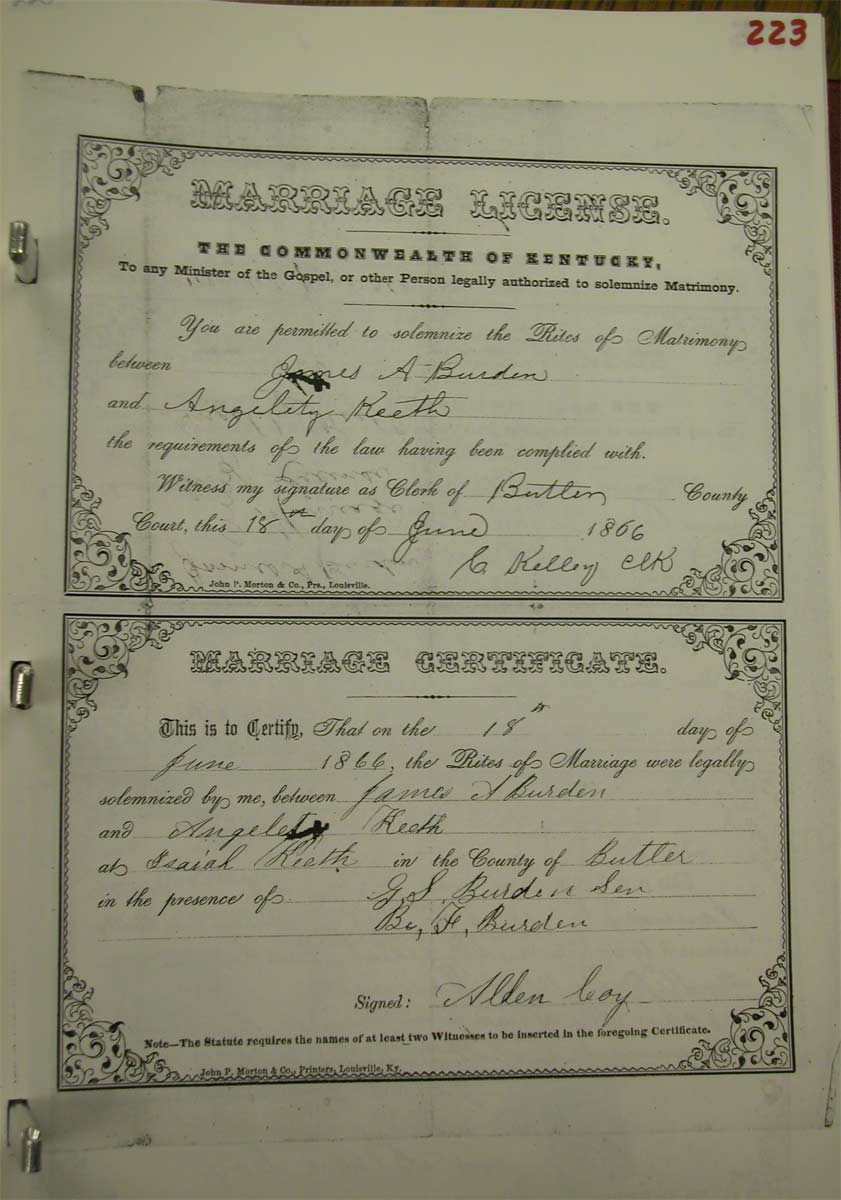 223
MARRIAGE LICENSE.
THE COMMONWEALTH OF KENTUCKY,
To any Minister of the Gospel, or other Person legally authorized to solemnize Matrimony.
You are permitted to solemnize the Rites of Matrimony
between James A Burden
and Angelety Keeth
the requirements of the law having been complied with.
Witness my signature as Clerk of Butler County
Court, this 18th day of June 1866
C Kelley Clk
John P. Morton & Co., Prs., Louisville.
MARRIAGE CERTIFICATE.
This is to Certify, That on the 18th day of
June 1866, the Rites of Marriage were legally
solemnized by me, between James A Burden
and Angelety Keeth
at Isaiah Keeth in the County of Butler
in the presence of G. S. Burden Sen
F, Burden
Signed: Alden Coy
Note—The Statute requires the names of at least two Witnesses to be inserted in the foregoing Certificate.
John P. Morton & Co., Printers, Louisville, Ky.